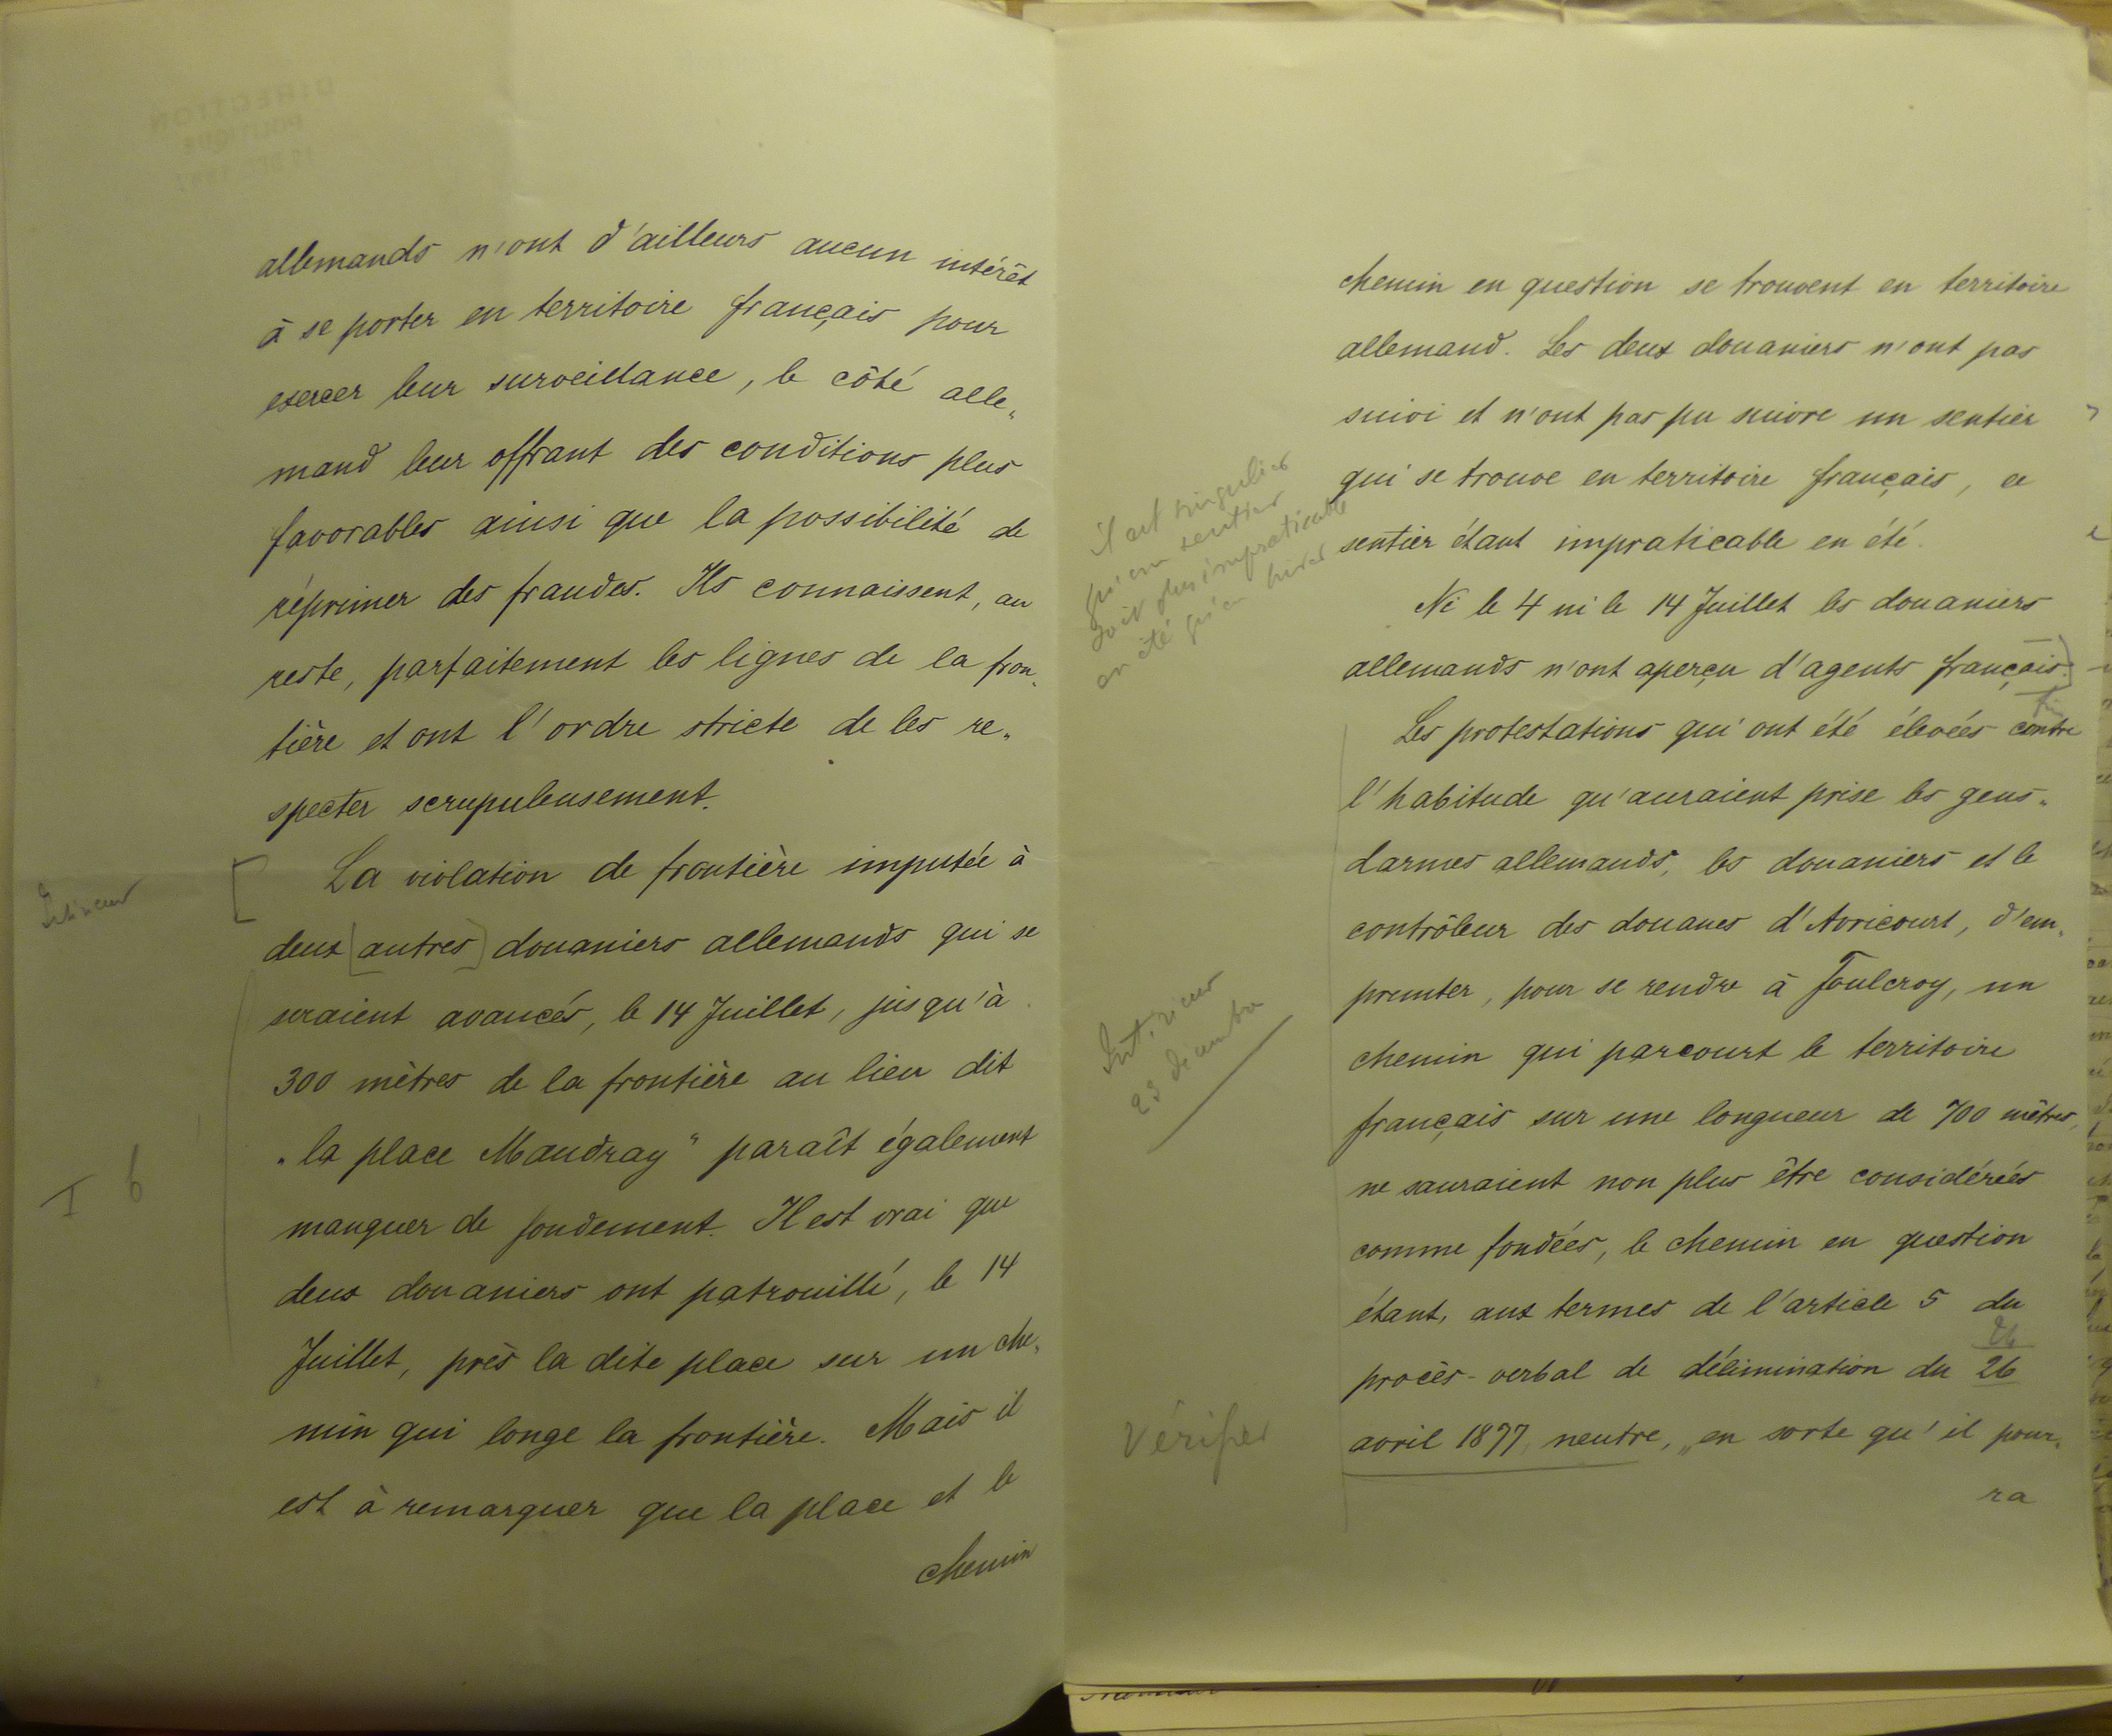 allemands n'ont d'ailleurs aucun intérêt
à se porter en territoire français pour
exercer leur surveillance, le côté alle„
mand leur offrant des conditions plus
favorables ainsi que la possibilité de
réprimer des fraudes. Ils connaissent, au
reste, parfaitement les lignes de la fron„
tière et ont l'ordre stricte de les re„
specter scrupuleusement.
La violation de frontière imputée à
deux [autres] douaniers allemands qui se
seraient avancés, le 14 Juillet, jusqu'à
300 mètres de la frontière au lieu dit
„la place Maudray" paraît également
manquer de fondement. Il est vrai que
deux douaniers ont patrouillé, le 14
Juillet, près la dite place sur un che„
min qui longe la frontière. Mais il
est à remarquer que la place et le
chemin
I 6
chemin en question se trouvent en territoire
allemand. Les deux douaniers n'ont pas
suivi et n'ont pas pu suivre un sentier
qui se trouve en territoire français, ce
sentier étant impraticable en été.
Ni le 4 ni le 14 Juillet les douaniers
allemands n'ont aperçu d'agents français.]
Les protestations qui ont été élevées contre
l'habitude qu'auraient prise les gens„
darmes allemands, les douaniers et le
contrôleur des douanes d'Avricourt, d'em„
prunter, pour se rendre à Foulcroy, un
chemin qui parcourt le territoire
français sur une longueur de 700 mètres,
ne sauraient non plus être considérées
comme fondées, le chemin en question
étant, aux termes de l'article 5 du
procès-verbal de délimination du 26
avril 1877, neutre, „en sorte qu'il pour„
ra
il est singulier
qu'un sentier
soit plus impraticable
en été qu'en hiver
Intérieur
23 décembre
Vérifier